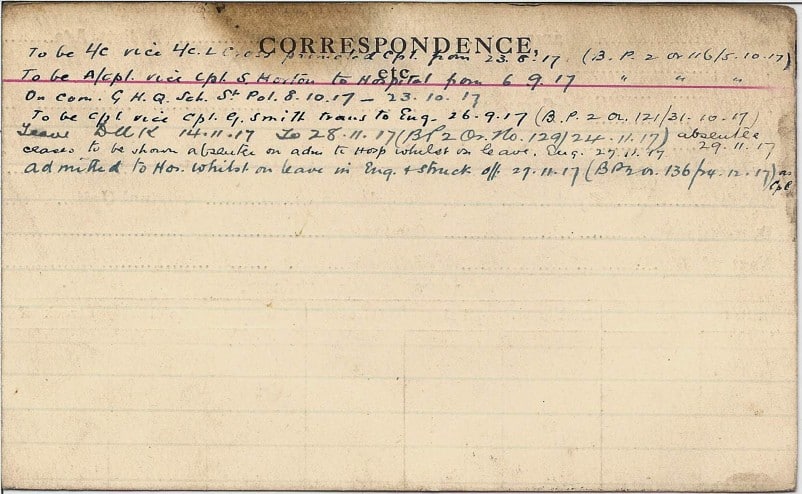 CORRESPONDENCE,
etc.
To be L/c vice L/c. L Cross promoted Cpl. from 23.8.17. (B.P. 2 Or 116/5.10.17)
To be A/Cpl. vice Cpl. S Horton to Hospital from 6 9.17 " " "
On Com. G.H.Q. Sch. St Pol. 8.10.17 – 23.10.17
To be Cpl vice Cpl. G. Smith trans to Eng. 26.9.17 (B.P. 2 Or. 121/31.10.17)
Leave U.K 14.11.17 to 28.11.17 (B.P. 2 Or. No. 129/24.11.17) absentee
ceases to be shown absentee on adm to Hosp whilst on leave. Eng. 27.11.17 29.11.17
admitted to Hos. whilst on leave in Eng. & struck off. 27.11.17 (BP2 or. 136/24.12.17) as
Cpl